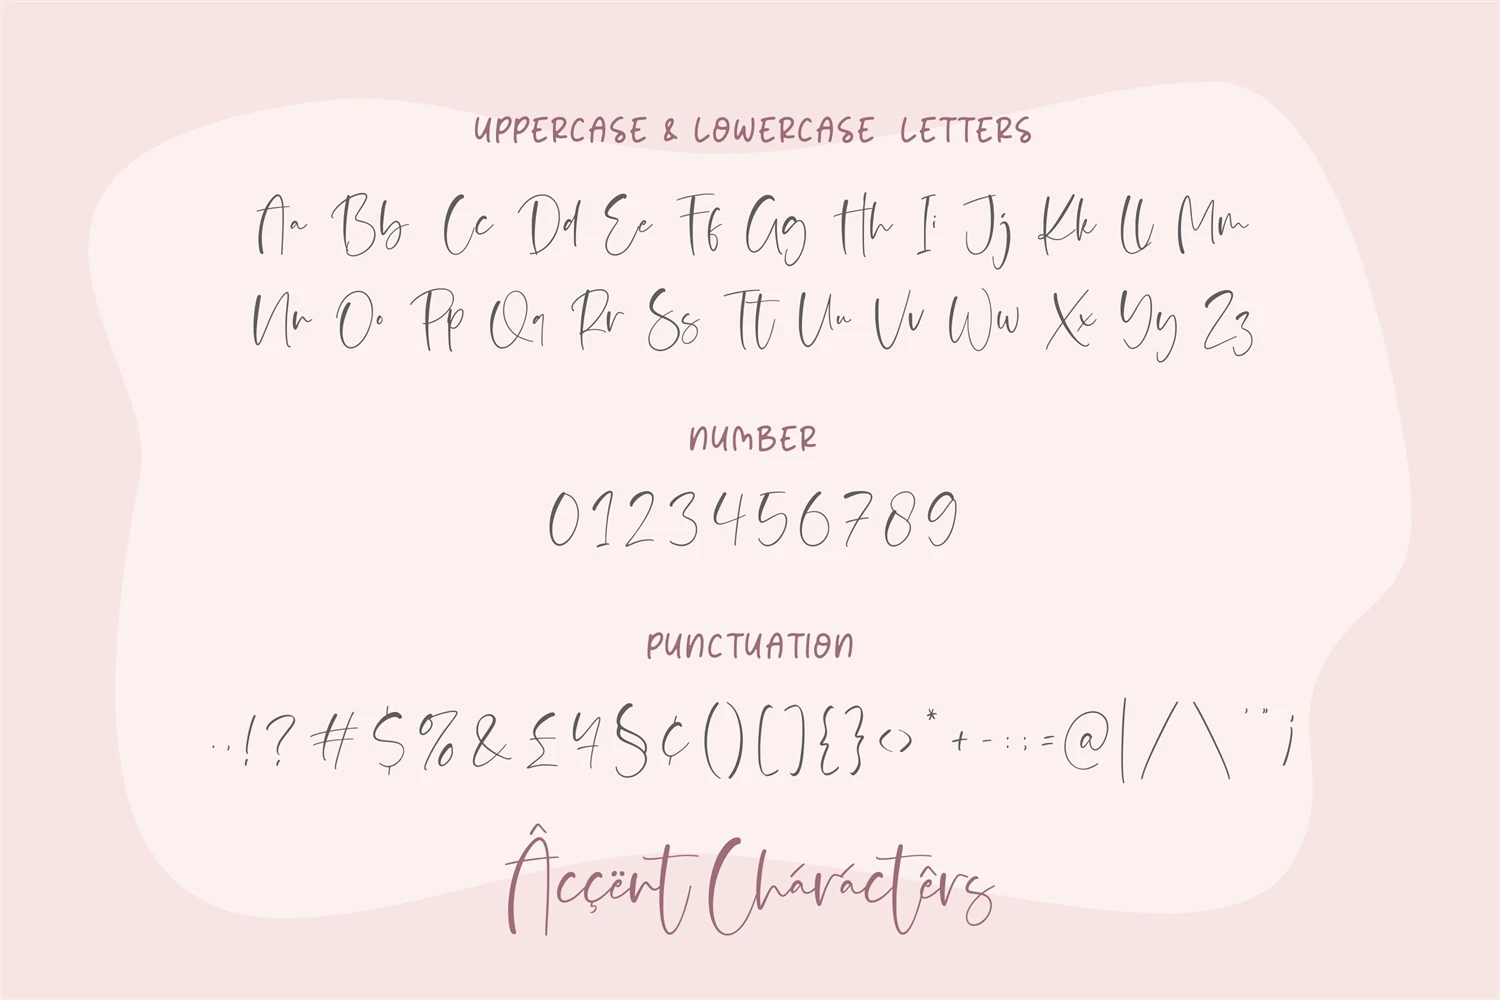 UPPERCASE & LOWERCASE LETTERS
Aa Bb Cc Dd Ee Ff Gg Hh Ii Jj Kk Ll Mm
Nn Oo Pp Qq Rr Ss Tt Uu Vv Ww Xx Yy Zz
NUMBER
0123456789
PUNCTUATION
.,!?#$%&£¥§¢()[]{}<>*+-:;=@|/\'"¡
Âççërt Cháráctêrs